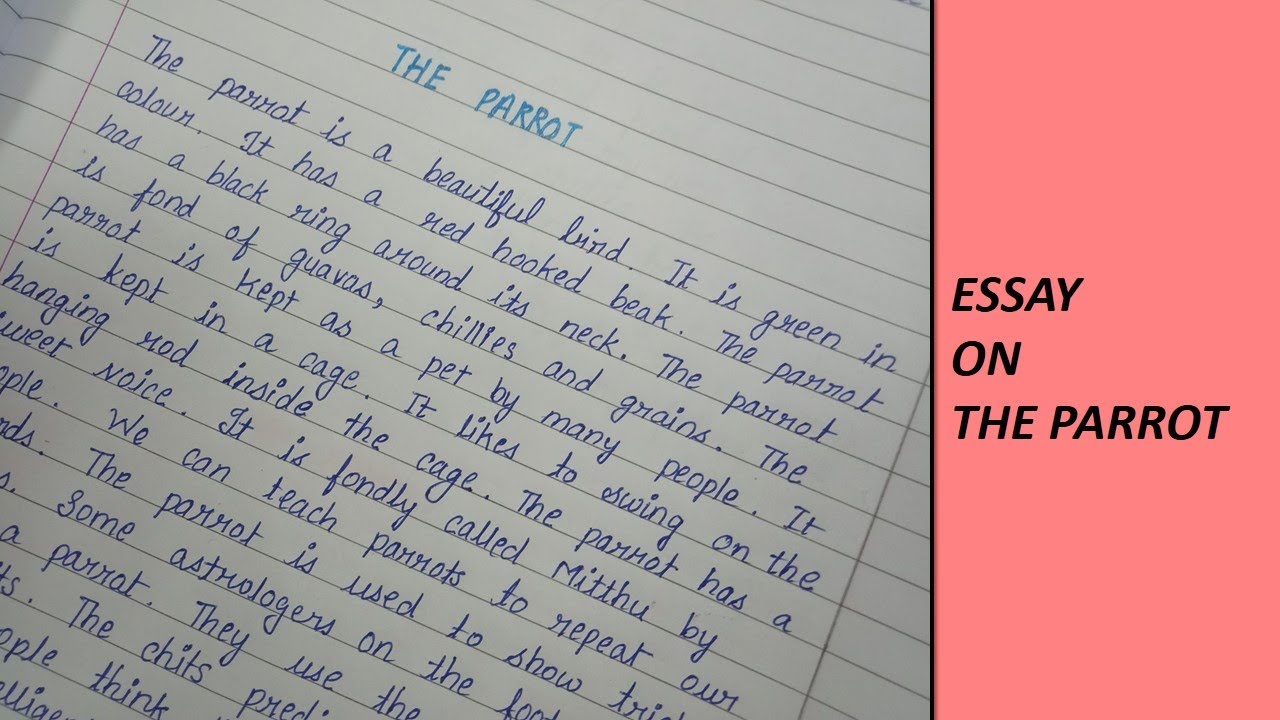 THE PARROT
The parrot is a beautiful bird. It is green in
colour. It has a red hooked beak. The parrot
has a black ring around its neck. The parrot
is fond of guavas, chillies and grains. The
parrot is kept as a pet by many people. It
is kept in a cage. It likes to swing on the
hanging rod inside the cage. The parrot has a
sweet voice. It is fondly called Mitthu by
ople. We can teach parrots to repeat our
rds. The parrot is used to show tric
s. Some astrologers on the foot
a parrot. They use the
ts. The chits predi
ople think
ESSAY
ON
THE PARROT